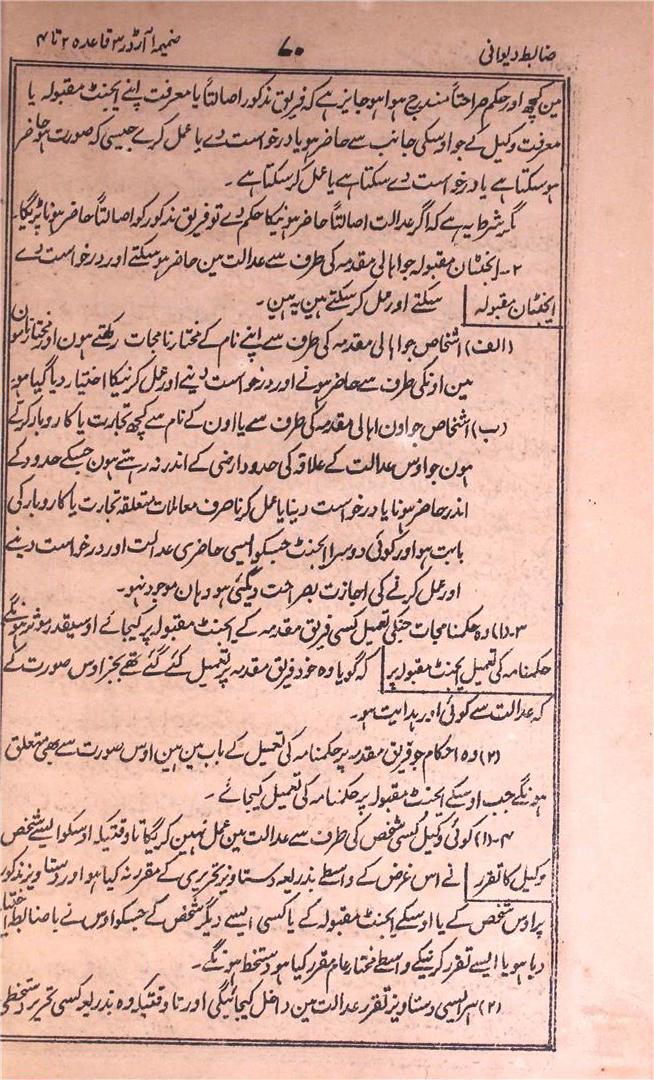 ضابطہ دیوانی ۷۰ ضمیمہ ا آرڈر ۳ قاعدہ ۲ تا ۴
مین کچھ اور حکم صراحتاً مندرج ہوا ہو جایز ہے کہ فریق مذکور اصالتاً یا معرفت اپنے ایجنٹ مقبولہ یا
معرفت وکیل کے جو اوسکی جانب سے حاضر ہو یا درخواست دے یا عمل کرے جیسی کہ صورت ہو حاضر
ہو سکتا ہے یا درخواست دے سکتا ہے یا عمل کر سکتا ہے ۔
مگر شرط یہ ہے کہ اگر عدالت اصالتاً حاضر ہونیکا حکم دے تو فریق مذکور کو اصالتاً حاضر ہونا پڑیگا۔
۲۔ ایجنٹان مقبولہ جو اہالی مقدمہ کی طرف سے عدالت مین حاضر ہو سکتے اور درخواست دے
ایجنٹان مقبولہ سکتے اور عمل کر سکتے ہین یہ ہین ۔
(الف) اشخاص جو اہالی مقدمہ کی طرف سے اپنے نام کے مختار نامجات رکھتے ہون اور مختارنامون
مین اونکی طرف سے حاضر ہونے اور درخواست دینے اور عمل کرنیکا اختیار دیا گیا ہو۔
(ب) اشخاص جو اون اہالی مقدمہ کی طرف سے یا اون کے نام سے کچھ تجارت یا کاروبار کرتے
ہون جو اوس عدالت کے علاقہ کی حدود ارضی کے اندر نہ رہتے ہون جسکے حدود کے
اندر حاضر ہونا یا درخواست دینا یا عمل کرنا صرف معاملات متعلقہ تجارت یا کاروبار کی
بابت ہو اور کوئی دوسرا ایجنٹ جسکو ایسی حاضری عدالت اور درخواست دینے
اور عمل کرنے کی اجازت بصراحت دیگئی ہو وہان موجود نہو۔
۳۔(۱) وہ حکمنامجات جنکی تعمیل کسی فریق مقدمہ کے ایجنٹ مقبولہ پر کیجائے اوسیقدر موثر ہونگے
حکمنامہ کی تعمیل ایجنٹ مقبولہ پر کہ گویا وہ خود فریق مقدمہ پر تعمیل کئے گئے تھے بجز اوس صورت کے
کہ عدالت سے کوئی اور ہدایت ہو۔
(۲) وہ احکام جو فریق مقدمہ پر حکمنامہ کی تعمیل کے باب مین ہین اوس صورت سے بھی متعلق
ہونگے جب اوسکے ایجنٹ مقبولہ پر حکمنامہ کی تعمیل کیجائے ۔
۴۔(۱) کوئی وکیل کسی شخص کی طرف سے عدالت مین عمل نہین کریگا تا وقتیکہ اوسکو ایسے شخص
وکیل کا تقرر نے اس غرض کے واسطے بذریعہ دستاویز تحریری کے مقرر نہ کیا ہو اور دستاویز مذکور
پر اوس شخص کے یا اوسکے ایجنٹ مقبولہ کے یا کسی ایسے دیگر شخص کے جسکو اوس نے باضابطہ اختیار
دیا ہو یا ایسے تقرر کرنیکے واسطے مختار عام مقرر کیا ہو دستخط ہونگے۔
(۲) ہر ایسی دستاویز تقرر عدالت مین داخل کیجائیگی اور تا وقتیکہ وہ بذریعہ کسی تحریر دستخطی